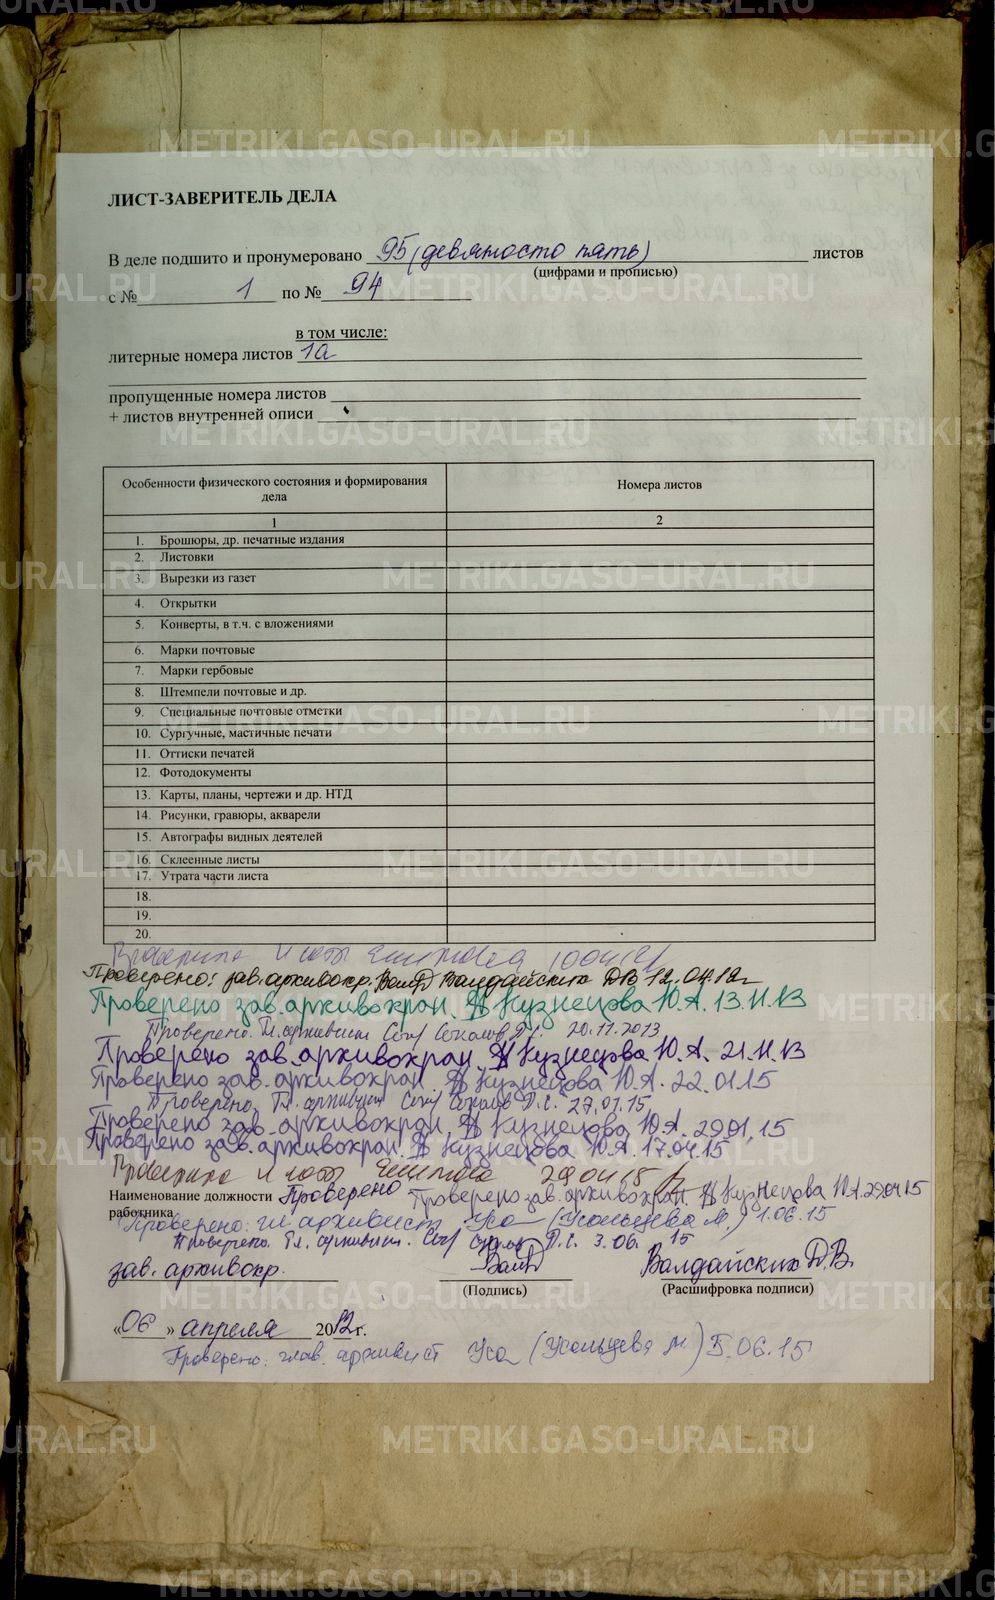 METRIKI.GASO-URAL.RU
ЛИСТ-ЗАВЕРИТЕЛЬ ДЕЛА
В деле подшито и пронумеровано 95 (девяносто пять) листов
(цифрами и прописью)
с № 1 по № 94
в том числе:
литерные номера листов 1а
пропущенные номера листов
+ листов внутренней описи
Особенности физического состояния и формирования дела
Номера листов
1
2
1. Брошюры, др. печатные издания
2. Листовки
3. Вырезки из газет
4. Открытки
5. Конверты, в т.ч. с вложениями
6. Марки почтовые
7. Марки гербовые
8. Штемпели почтовые и др.
9. Специальные почтовые отметки
10. Сургучные, мастичные печати
11. Оттиски печатей
12. Фотодокументы
13. Карты, планы, чертежи и др. НТД
14. Рисунки, гравюры, акварели
15. Автографы видных деятелей
16. Склеенные листы
17. Утрата части листа
18.
19.
20.
Проверено: зав. архивохр. Валдайских ДВ 12.04.12г
Проверено зав. архивохран. Кузнецова Ю.А. 13.11.13
Проверено. Гл. архивист Соколов Д.С. 20.11.2013
Проверено зав. архивохран. Кузнецова Ю.А. 21.11.13
Проверено зав. архивохран. Кузнецова Ю.А. 22.01.15
Проверено. Гл. архивист Соколов Д.С. 27.01.15
Проверено зав. архивохран. Кузнецова Ю.А. 29.01.15
Проверено зав. архивохран. Кузнецова Ю.А. 17.04.15
29 04 15
Наименование должности Проверено Проверено зав. архивохран. Кузнецова Ю.А. 29.04.15
работника
Проверено: гл. архивист Усо (Усольцева М.) 1.06.15
Проверено. Гл. архивист. Д.С. 3.06.15
зав. архивохр. Валдайских Д.В.
(Подпись) (Расшифровка подписи)
«06» апреля 2012 г.
Проверено: глав. архивист Усо (Усольцева М.) 5.06.15